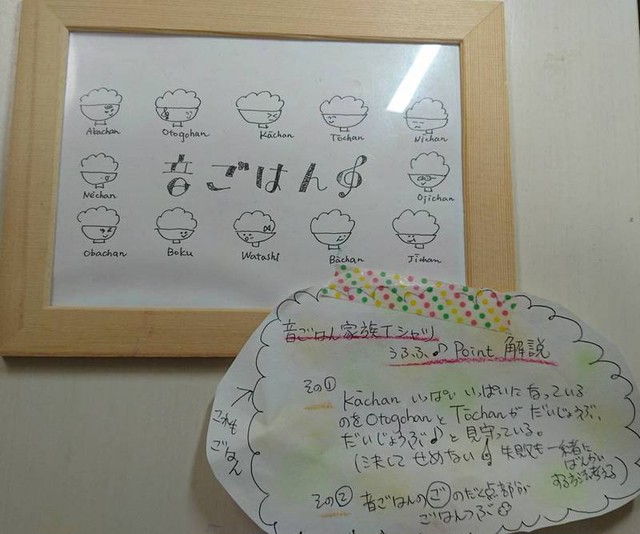 Abachan Otogohan Kāchan Tōchan Nichan
Nēchan 音ごはん Ojichan
Obachan Boku Watashi Bāchan Jichan
音ごはん家族Tシャツ
うふふ♪ Point 解説
その① Kāchan いっぱい いっぱいに なっている
のを Otogohan と Tōchan が だいじょうぶ、
だいじょうぶ♪ と 見守っている。
(決して せめない 失敗も 一緒に
その② 音ごはんの ご のだく点部分が
ごはんつぶ
これも
ごはん